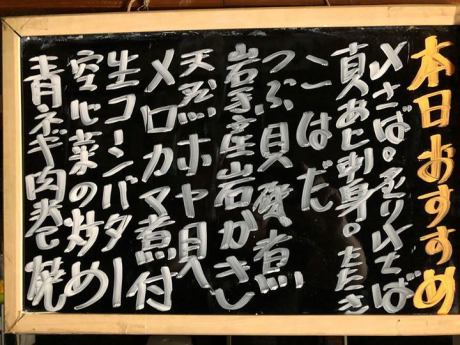 本日おすすめ
〆さば。炙り〆さば
真あじ刺身。たたき
こはだ
つぶ貝磯煮
岩手産岩がき
天然ホヤ貝
メロカマ煮付
生コーンバター
空心菜の炒め
青ネギ肉巻き焼